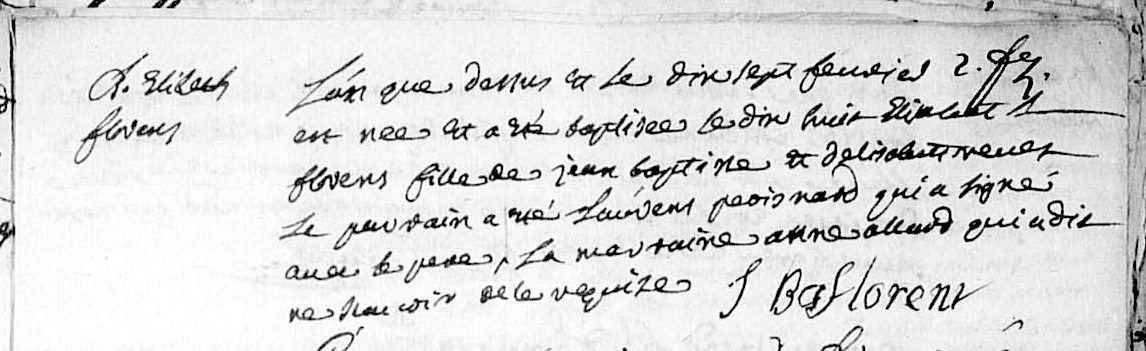 B. Elisabeth
florens
L'an que dessus et le dix sept fevrier
est nee et a eté baptisée le dix huit Elisabeth
florens fille de jean baptiste et d'elisabeth
Le parrain a eté Laurens peoisnard qui a signé
avec le pere, La marraine anne allard qui a dit
ne sçavoir de ce requize J Ba florent